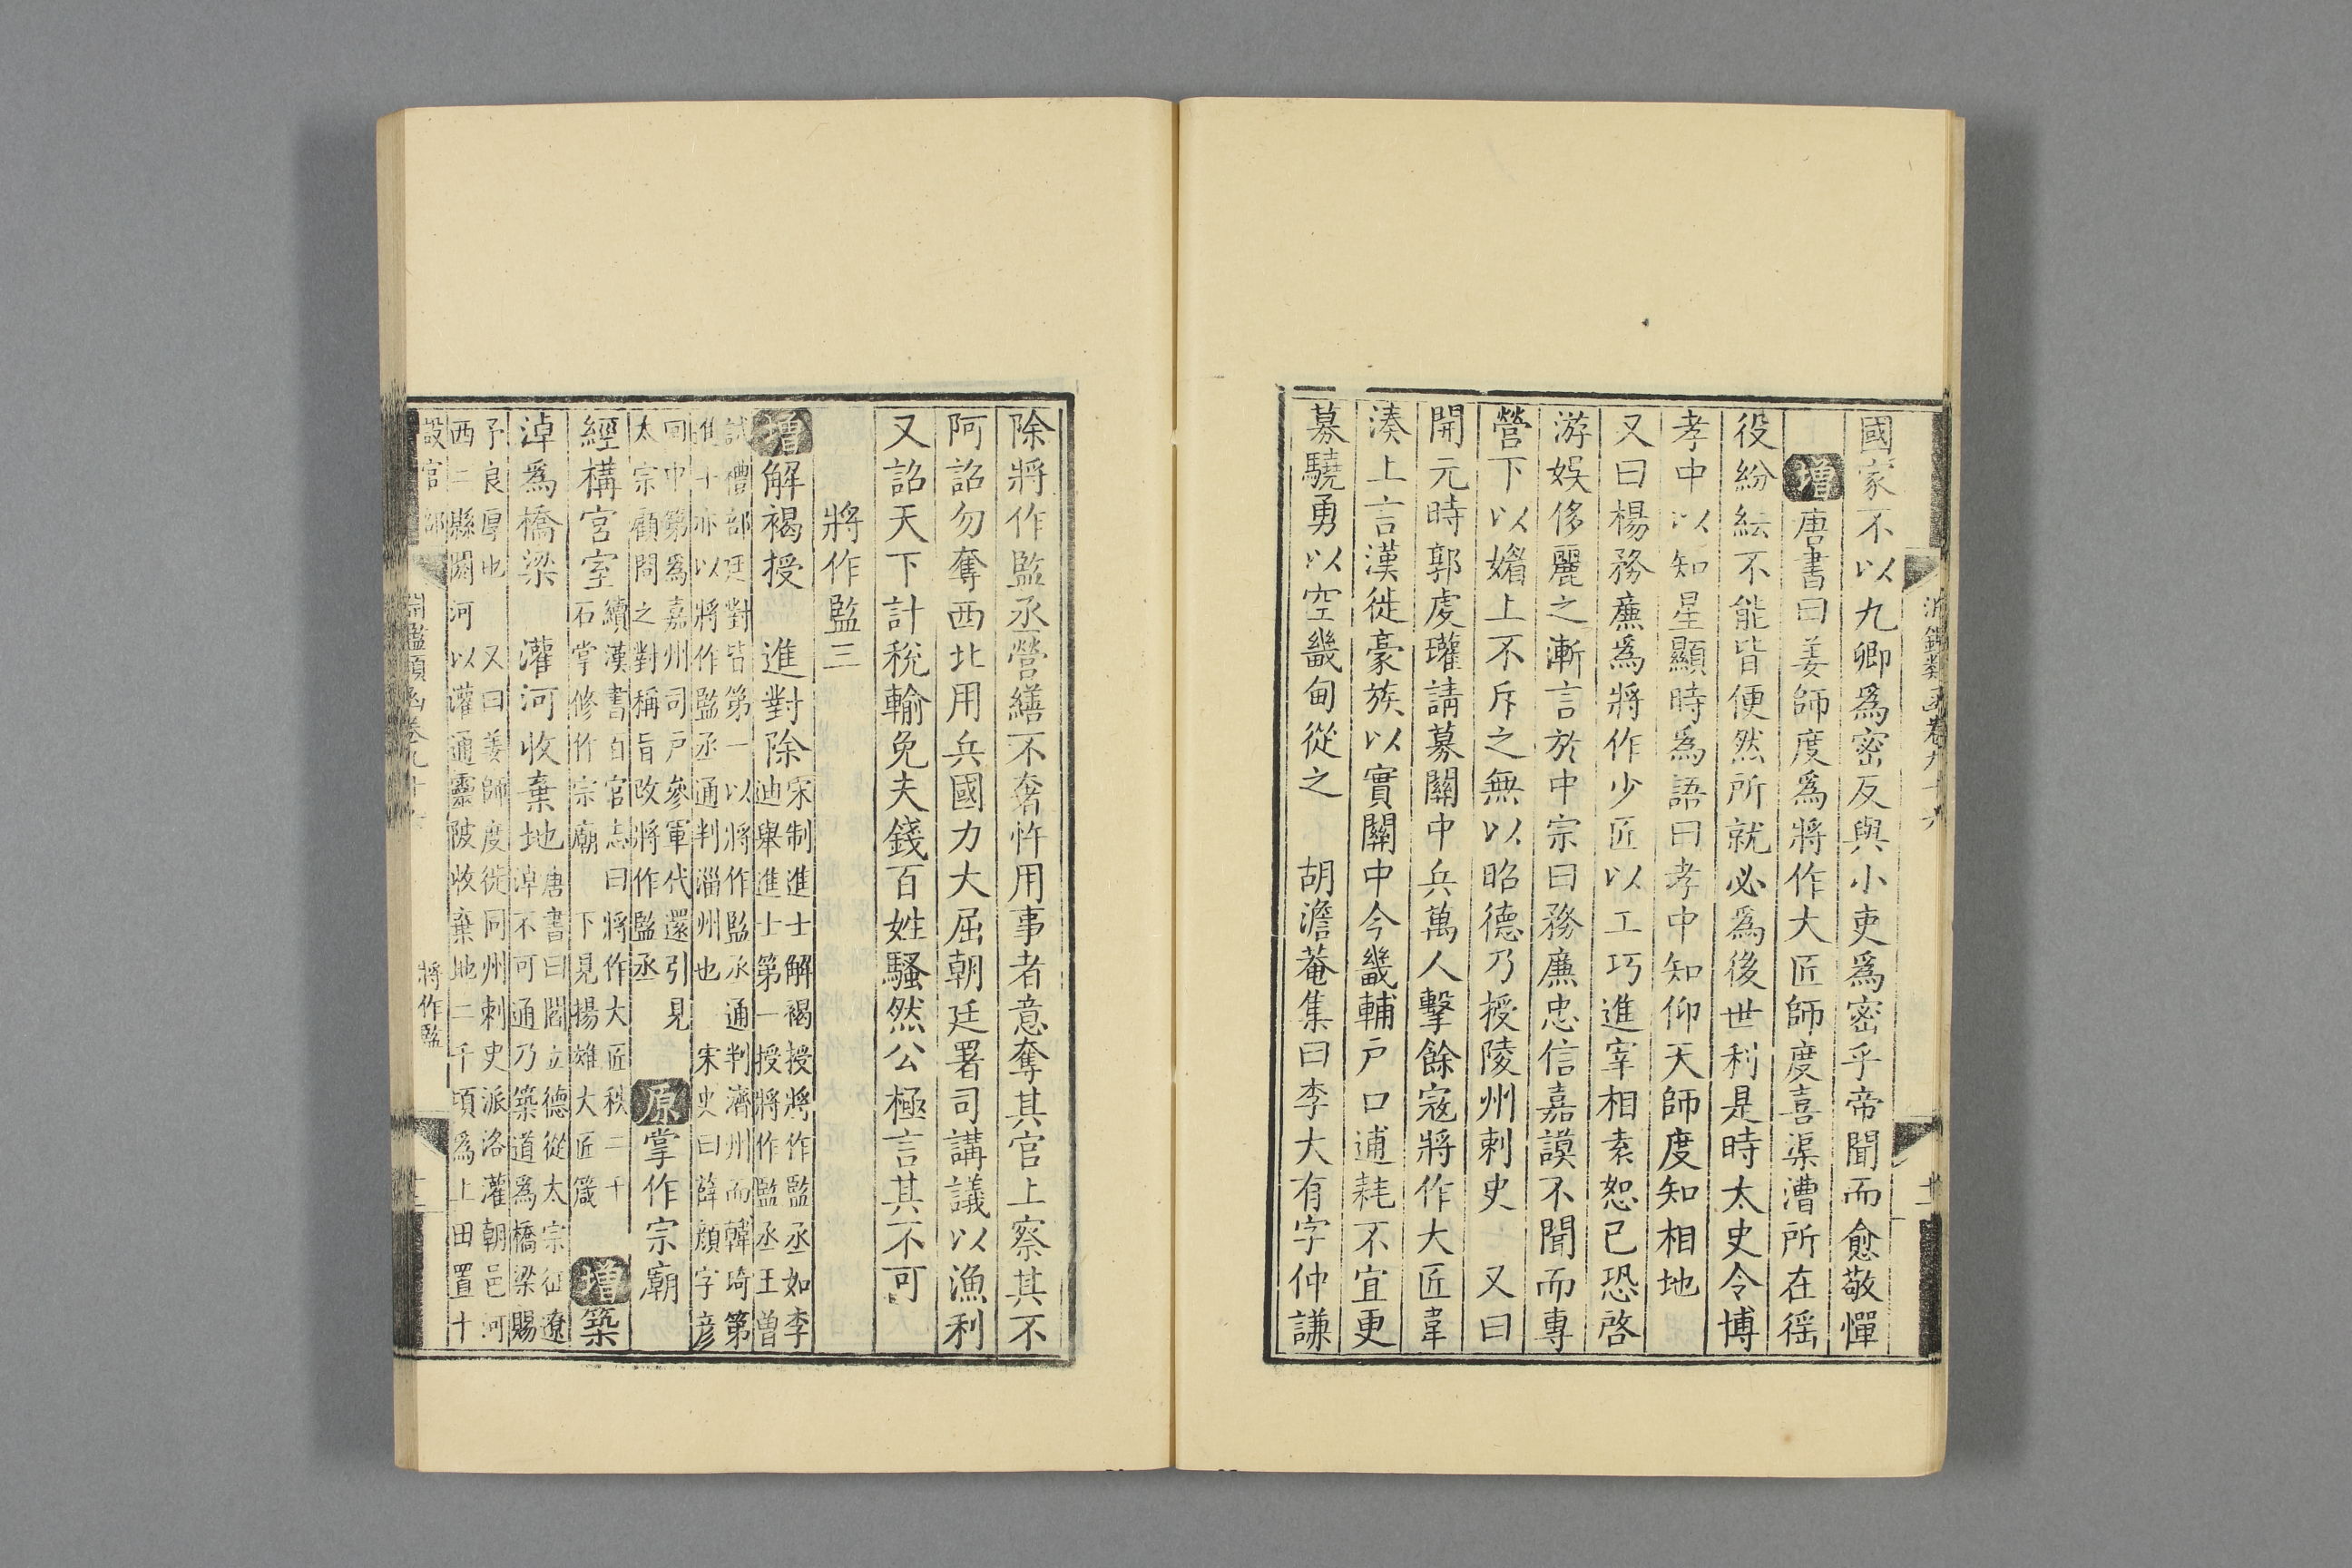 國家不以九卿爲密反與小吏爲密乎帝聞而愈敬憚
增唐書曰姜師度爲將作大匠師度喜渠漕所在徭
役紛紜不能皆便然所就必爲後世利是時太史令博
孝中以知星顯時爲語曰孝中知仰天師度知相地
又曰楊務廉爲將作少匠以工巧進宰相素恕已恐啓
游娛侈麗之漸言於中宗曰務廉忠信嘉謨不聞而專
營下以媚上不斥之無以昭德乃授陵州刺史 又曰
開元時郭虔瓘請募關中兵萬人擊餘寇將作大匠韋
湊上言漢徙豪族以實關中今畿輔戶口逋耗不宜更
募驍勇以空畿甸從之 胡澹菴集曰李大有字仲謙
除將作監丞營繕不奢忤用事者意奪其官上察其不
阿詔勿奪西北用兵國力大屈朝廷署司講議以漁利
又詔天下計稅輸免夫錢百姓騷然公極言其不可
將作監三
增解褐授 進對除宋制進士解褐授將作監丞如李
迪舉進士第一授將作監丞王曾
試禮部廷對皆第一以將作監丞通判濟州而韓琦第
進士亦以將作監丞通判淄州也 宋史曰薛顏字彦
回中第爲嘉州司戶參軍代還引見
太宗顧問之對稱旨改將作監丞
原掌作宗廟
經構宮室續漢書百官志曰將作大匠秩二千
石掌修作宗廟 下見揚雄大匠箴
增築
淖爲橋梁 灌河收棄地唐書曰閻立德從太宗征遼
淖不可通乃築道爲橋梁賜
予良厚也 又曰姜師度徙同州刺史派洛灌朝邑河
西二縣閼河以灌通靈陂收棄地二千頃爲上田置十
將作監